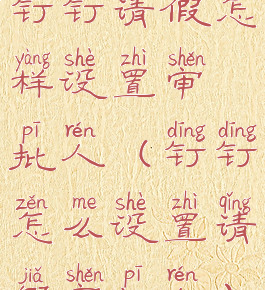 钉钉请假怎
yàng shè zhì shěn
样设置审
pī rén dīng dīng
批人（钉钉
zěn me shè zhì qǐng
怎么设置请
jiǎ shěn pī rén